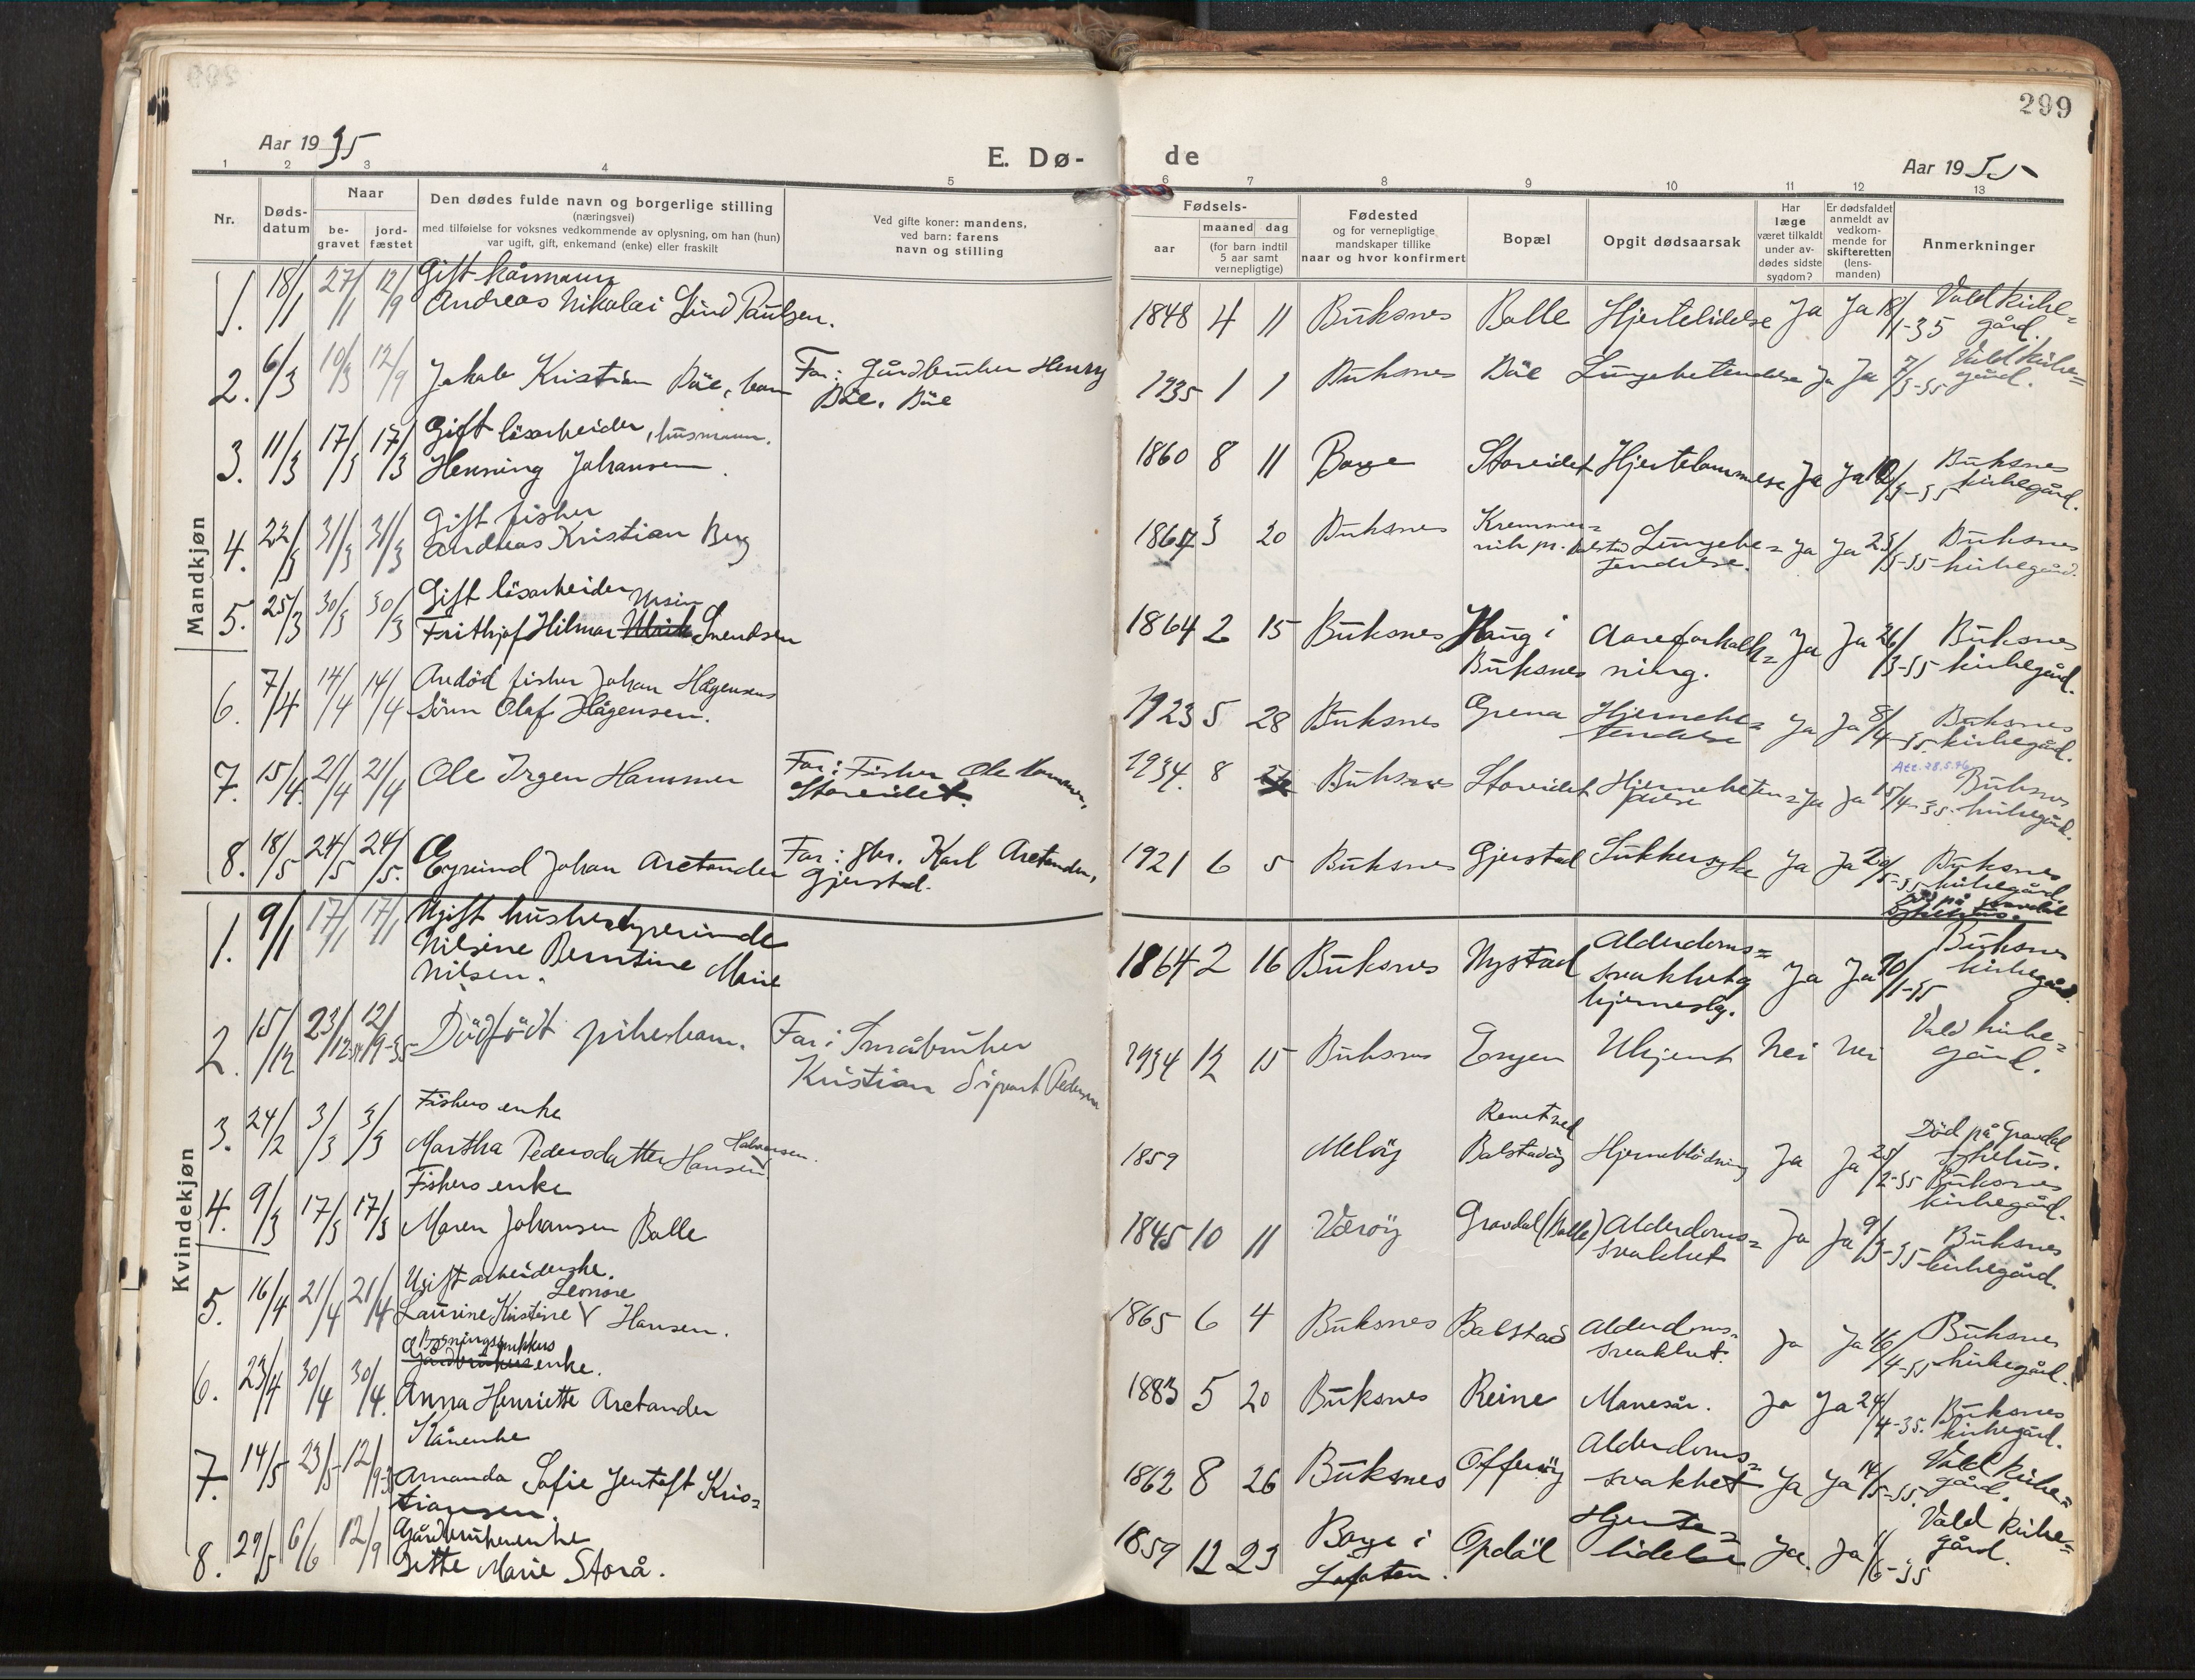 299
Aar 1935
E. Dø-
de
Aar 1935
1 2 3 4 5 6 7 8 9 10 11 12 13
Nr.
Døds-
datum
Naar
be-
gravet
jord-
fæstet
Den dødes fulde navn og borgerlige stilling
(næringsvei)
med tilføielse for voksnes vedkommende av oplysning, om han (hun)
var ugift, gift, enkemand (enke) eller fraskilt
Ved gifte koner: mandens,
ved barn: farens
navn og stilling
Fødsels-
aar
maaned dag
(for barn indtil
5 aar samt
vernepligtige)
Fødested
og for vernepligtige
mandskaper tillike
naar og hvor konfirmert
Bopæl
Opgit dødsaarsak
Har
læge
været tilkaldt
under av-
dødes sidste
sygdom?
Er dødsfaldet
anmeldt av
vedkom-
mende for
skifteretten
(lens-
manden)
Anmerkninger
Mandkjøn
Gift kårmann
1. 18/1 27/1 12/9 Andreas Nikolai Lind Paulsen. 1848 4 11 Buksnes Balle Hjertelidelse Ja Ja 18/1-35 Vald kirke=
gård.
2. 6/3 10/3 12/9 Jakob Kristian Böe, barn Far: Gårdbruker Henry 1935 1 1 Buksnes Böe Lungebetendelse Ja Ja 7/3-35 Vald kirke=
Böe, Böe gård.
Gift lösarbeider, husmann.
3. 11/3 17/3 17/3 Henning Johansen. 1860 8 11 Borge Storeidet Hjertelammelse Ja Ja 12/3-35 Buksnes
kirkegård.
Gift fisker
4. 22/3 31/3 31/3 Andreas Kristian Berg 1867 3 20 Buksnes Kremmer=
vik pr. Balstad Lungebe=
tendelse. Ja Ja 25/3-35 Buksnes
kirkegård.
Gift lösarbeider
5. 25/3 30/3 30/3 Frithjof Hilmar Ulrik Svendsen 1864 2 15 Buksnes Haug i
Buksnes Aareforkalk=
ning. Ja Ja 26/3-35 Buksnes
kirkegård.
Avdöd fisker Johan Hågensens
6. 7/4 14/4 14/4 Sönn Olaf Hågensen. 1923 5 28 Buksnes Grena Hjernebe=
tendelse Ja Ja 8/4-35 Buksnes
kirkegård.
Att. 28.5.76
7. 15/4 21/4 21/4 Ole Irgen Hammer Far: Fisker Ole Hammer,
Storeidet. 1934. 8 Buksnes Storeidet Hjernebeten=
delse Ja Ja 15/4-35 Buksnes
kirkegård.
8. 18/5 24/5 24/5. Eyvind Johan Arctander Far: gbr. Karl Arctander,
Gjerstad. 1921 6 5 Buksnes Gjerstad Sukkersyke Ja Ja 20/5-35 Buksnes
kirkegård
Död på Gravdal
sykehus.
Kvindekjøn
Ugift husbestyrerinde
1. 9/1 17/1 17/1 Nilsine Berntine Marie
Nilsen. 1864 2 16 Buksnes Nystad Alderdoms=
svakhet og
hjerneslag. Ja Ja 10/1-35 Buksnes
kirkegård.
2. 15/12 23/12-34 12/9-35 Dödfödt pikebarn. Far: Småbruker
Kristian Sigvart Pedersen 1934 12 15 Buksnes Engen Ukjent Nei Nei Vald kirke=
gård.
Fiskers enke
3. 24/2 3/3 3/3 Martha Pedersdatter Hansen Halvorsen. 1859 Melöy Balstadöy Hjerneblödning Ja Ja 25/2-35 Död på Gravdal
sykehus.
Buksnes
kirkegård.
Fiskers enke
4. 9/3 17/3 17/3 Maren Johansen Balle 1845 10 11 Væröy Gravdal (Balle) Alderdoms=
svakhet Ja Ja 9/3-35 Buksnes
kirkegård.
Ugift arbeiderske.
Leonore
5. 16/4 21/4 21/4 Laurine Kristine V Hansen. 1865 6 4 Buksnes Balstad Alderdoms=
svakhet. Ja Ja 16/4-35 Buksnes
kirkegård.
Gårdbrukers enke.
6. 23/4 30/4 30/4. Anna Henriette Arctander 1883 5 20 Buksnes Reine Mavesår. Ja Ja 24/4-35. Buksnes
kirkegård.
Kårenke
7. 14/5 23/5 12/9-35 Amanda Sofie Jentoft Kris=
tiansen. 1862 8 26 Buksnes Offersöy Alderdoms=
svakhet Ja Ja 14/5-35. Vald kirke=
gård.
Gårdbrukerenke
8. 29/5 6/6 12/9 Gitte Marie Storå. 1859 12 23 Borge i
Lofoten. Opdöl Hjerte=
lidelse Ja. Ja 1/6-35 Vald kirke=
gård.